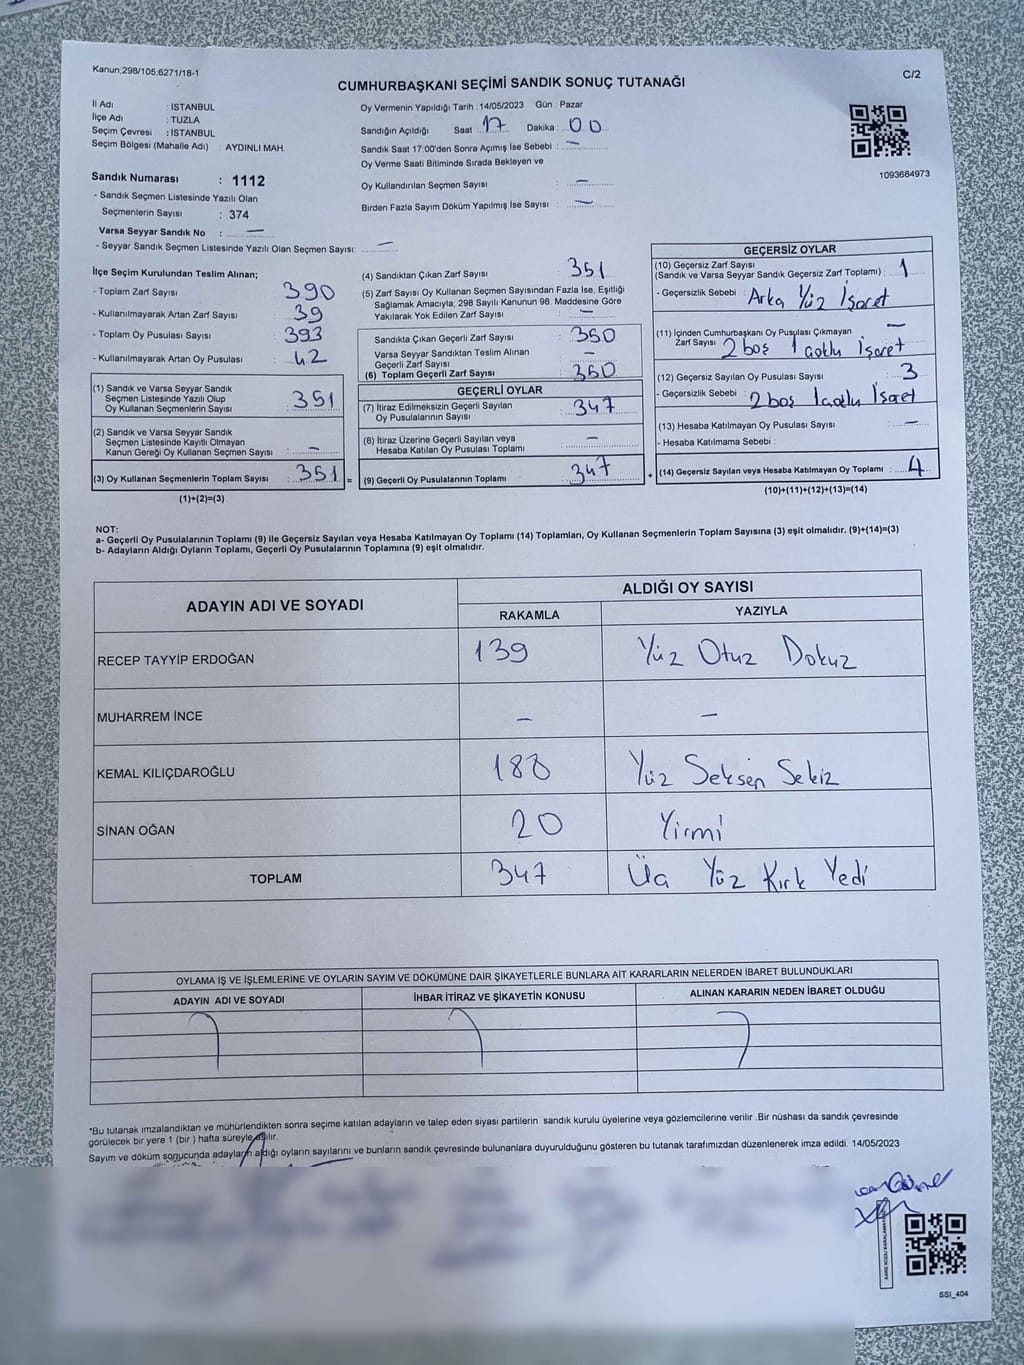 Kanun:298/105;6271/18-1
C/2
CUMHURBAŞKANI SEÇİMİ SANDIK SONUÇ TUTANAĞI
İl Adı : İSTANBUL
İlçe Adı : TUZLA
Seçim Çevresi : İSTANBUL
Seçim Bölgesi (Mahalle Adı) : AYDINLI MAH.
Oy Vermenin Yapıldığı Tarih : 14/05/2023 Gün : Pazar
Sandığın Açıldığı Saat : 17 Dakika : 00
Sandık Saat 17:00'den Sonra Açımış İse Sebebi : —
Oy Verme Saati Bitiminde Sırada Bekleyen ve
Oy Kullandırılan Seçmen Sayısı : —
Birden Fazla Sayım Döküm Yapılmış İse Sayısı : —
1093684973
Sandık Numarası : 1112
- Sandık Seçmen Listesinde Yazılı Olan
Seçmenlerin Sayısı : 374
Varsa Seyyar Sandık No : —
- Seyyar Sandık Seçmen Listesinde Yazılı Olan Seçmen Sayısı: —
İlçe Seçim Kurulundan Teslim Alınan;
- Toplam Zarf Sayısı : 390
- Kullanılmayarak Artan Zarf Sayısı : 39
- Toplam Oy Pusulası Sayısı : 393
- Kullanılmayarak Artan Oy Pusulası : 42
(1) Sandık ve Varsa Seyyar Sandık
Seçmen Listesinde Yazılı Olup
Oy Kullanan Seçmenlerin Sayısı : 351
(2) Sandık ve Varsa Seyyar Sandık
Seçmen Listesinde Kayıtlı Olmayan
Kanun Gereği Oy Kullanan Seçmen Sayısı : —
(3) Oy Kullanan Seçmenlerin Toplam Sayısı : 351 =
(1)+(2)=(3)
(4) Sandıktan Çıkan Zarf Sayısı : 351
(5) Zarf Sayısı Oy Kullanan Seçmen Sayısından Fazla İse, Eşitliği
Sağlamak Amacıyla; 298 Sayılı Kanunun 98. Maddesine Göre
Yakılarak Yok Edilen Zarf Sayısı : —
Sandıkta Çıkan Geçerli Zarf Sayısı : 350
Varsa Seyyar Sandıktan Teslim Alınan
Geçerli Zarf Sayısı : —
(6) Toplam Geçerli Zarf Sayısı : 350
GEÇERLİ OYLAR
(7) İtiraz Edilmeksizin Geçerli Sayılan
Oy Pusulalarının Sayısı : 347
(8) İtiraz Üzerine Geçerli Sayılan veya
Hesaba Katılan Oy Pusulası Toplamı : —
(9) Geçerli Oy Pusulalarının Toplamı : 347 +
GEÇERSİZ OYLAR
(10) Geçersiz Zarf Sayısı
(Sandık ve Varsa Seyyar Sandık Geçersiz Zarf Toplamı) : 1
- Geçersizlik Sebebi : Arka Yüz İşaret
(11) İçinden Cumhurbaşkanı Oy Pusulası Çıkmayan —
Zarf Sayısı 2 boş 1 çoklu İşaret
(12) Geçersiz Sayılan Oy Pusulası Sayısı : 3
- Geçersizlik Sebebi : 2 boş 1 çoklu İşaret
(13) Hesaba Katılmayan Oy Pusulası Sayısı : —
- Hesaba Katılmama Sebebi :
(14) Geçersiz Sayılan veya Hesaba Katılmayan Oy Toplamı : 4
(10)+(11)+(12)+(13)=(14)
NOT:
a- Geçerli Oy Pusulaları Toplamı (9) ile Geçersiz Sayılan veya Hesaba Katılmayan Oy Toplamı (14) Toplamları, Oy Kullanan Seçmenlerin Toplam Sayısına (3) eşit olmalıdır. (9)+(14)=(3)
b- Adayların Aldığı Oyların Toplamı, Geçerli Oy Pusulalarının Toplamına (9) eşit olmalıdır.
ADAYIN ADI VE SOYADI
ALDIĞI OY SAYISI
RAKAMLA YAZIYLA
RECEP TAYYİP ERDOĞAN 139 Yüz Otuz Dokuz
MUHARREM İNCE — —
KEMAL KILIÇDAROĞLU 188 Yüz Seksen Sekiz
SİNAN OĞAN 20 Yirmi
TOPLAM 347 Üç Yüz Kırk Yedi
OYLAMA İŞ VE İŞLEMLERİNE VE OYLARIN SAYIM VE DÖKÜMÜNE DAİR ŞİKAYETLERLE BUNLARA AİT KARARLARIN NELERDEN İBARET BULUNDUKLARI
ADAYIN ADI VE SOYADI İHBAR İTİRAZ VE ŞİKAYETİN KONUSU ALINAN KARARIN NEDEN İBARET OLDUĞU
*Bu tutanak imzalandıktan ve mühürlendikten sonra seçime katılan adayların ve talep eden siyasi partilerin sandık kurulu üyelerine veya gözlemcilerine verilir .Bir nüshası da sandık çevresinde
görülecek bir yere 1 (bir ) hafta süreyle asılır.
Sayım ve döküm sonucunda adayların aldığı oyların sayılarını ve bunların sandık çevresinde bulunanlara duyurulduğunu gösteren bu tutanak tarafımızdan düzenlenerek imza edildi. 14/05/2023
SSI_404